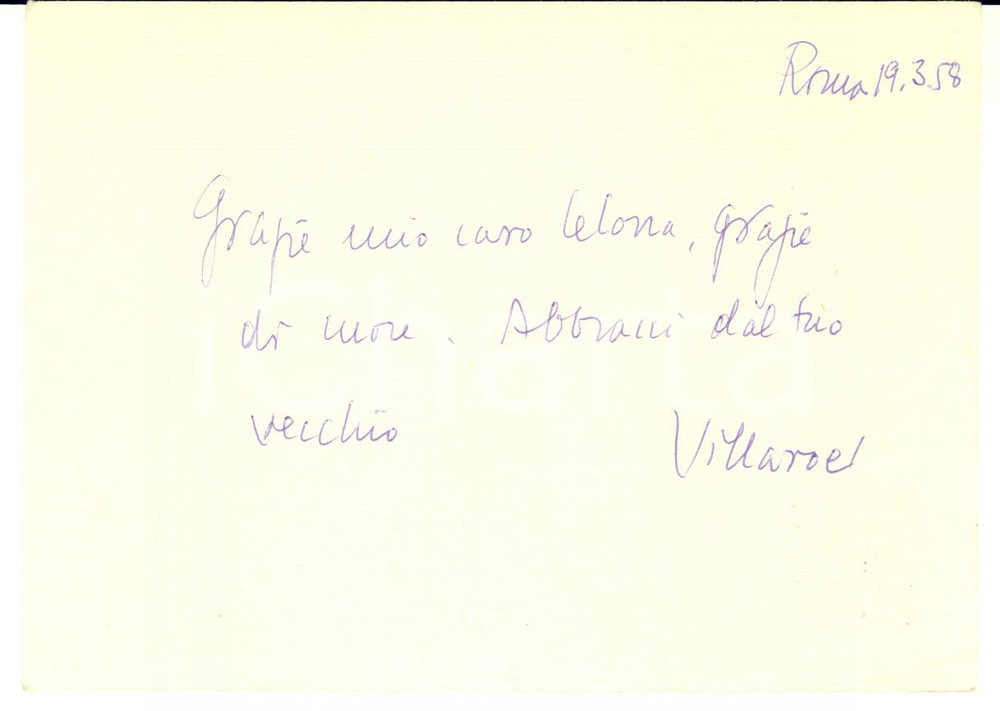 Roma 19.3.58
Grazie mio caro, grazie
di cuore. Abbracci dal tuo
vecchio Villaroel
iCharta